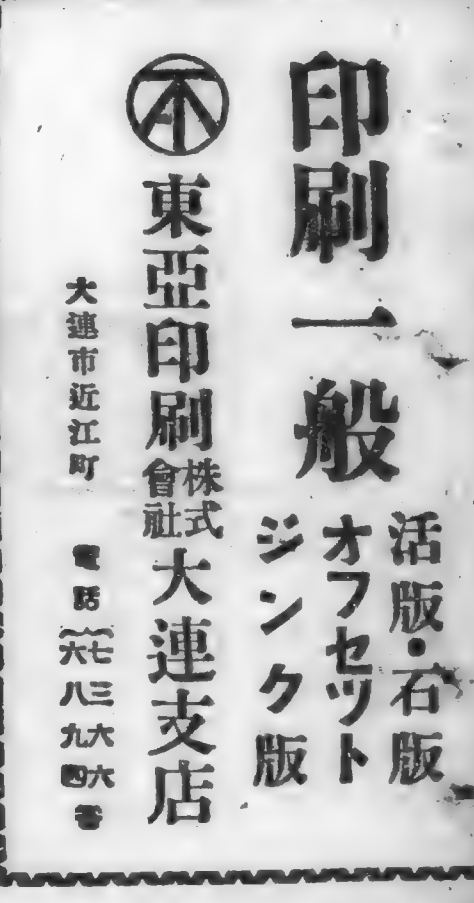 印刷一般
活版・石版
オフセツト
ジンク版
東亞印刷株式會社大連支店
大連市近江町
電話
七三六六
六八九四
番